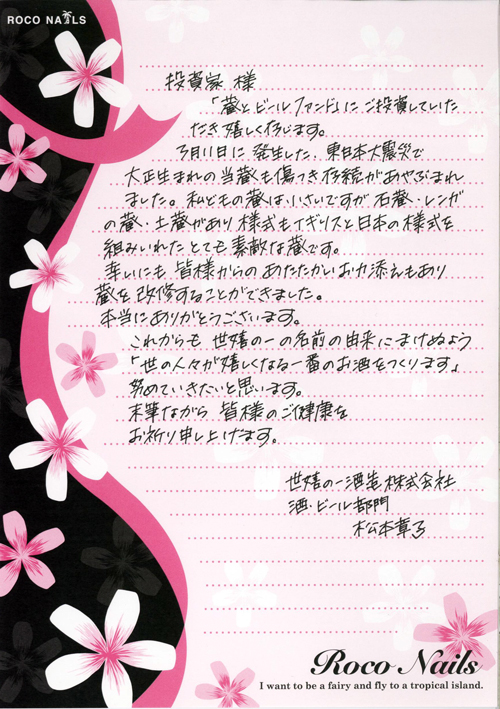 ROCO NAILS
投資家 様
「蔵とビールファンド」にご投資していた
だき嬉しく存じます。
3月11日に発生した、東日本大震災で
大正生まれの当蔵も傷つき存続があやぶまれ
ました。私どもの蔵は小さいですが石蔵・レンガ
の蔵・土蔵があり様式もイギリスと日本の様式を
組みいれたとても素敵な蔵です。
幸いにも皆様からのあたたかいお力添えもあり
蔵を改修することができました。
本当にありがとうございます。
これからも世嬉の一の名前の由来にまけぬよう
「世の人々が嬉しくなる一番のお酒をつくります」
努めていきたいと思います。
末筆ながら皆様のご健康を
お祈り申し上げます。
世嬉の一酒造株式会社
酒・ビール部門
松本
Roco Nails
I want to be a fairy and fly to a tropical island.